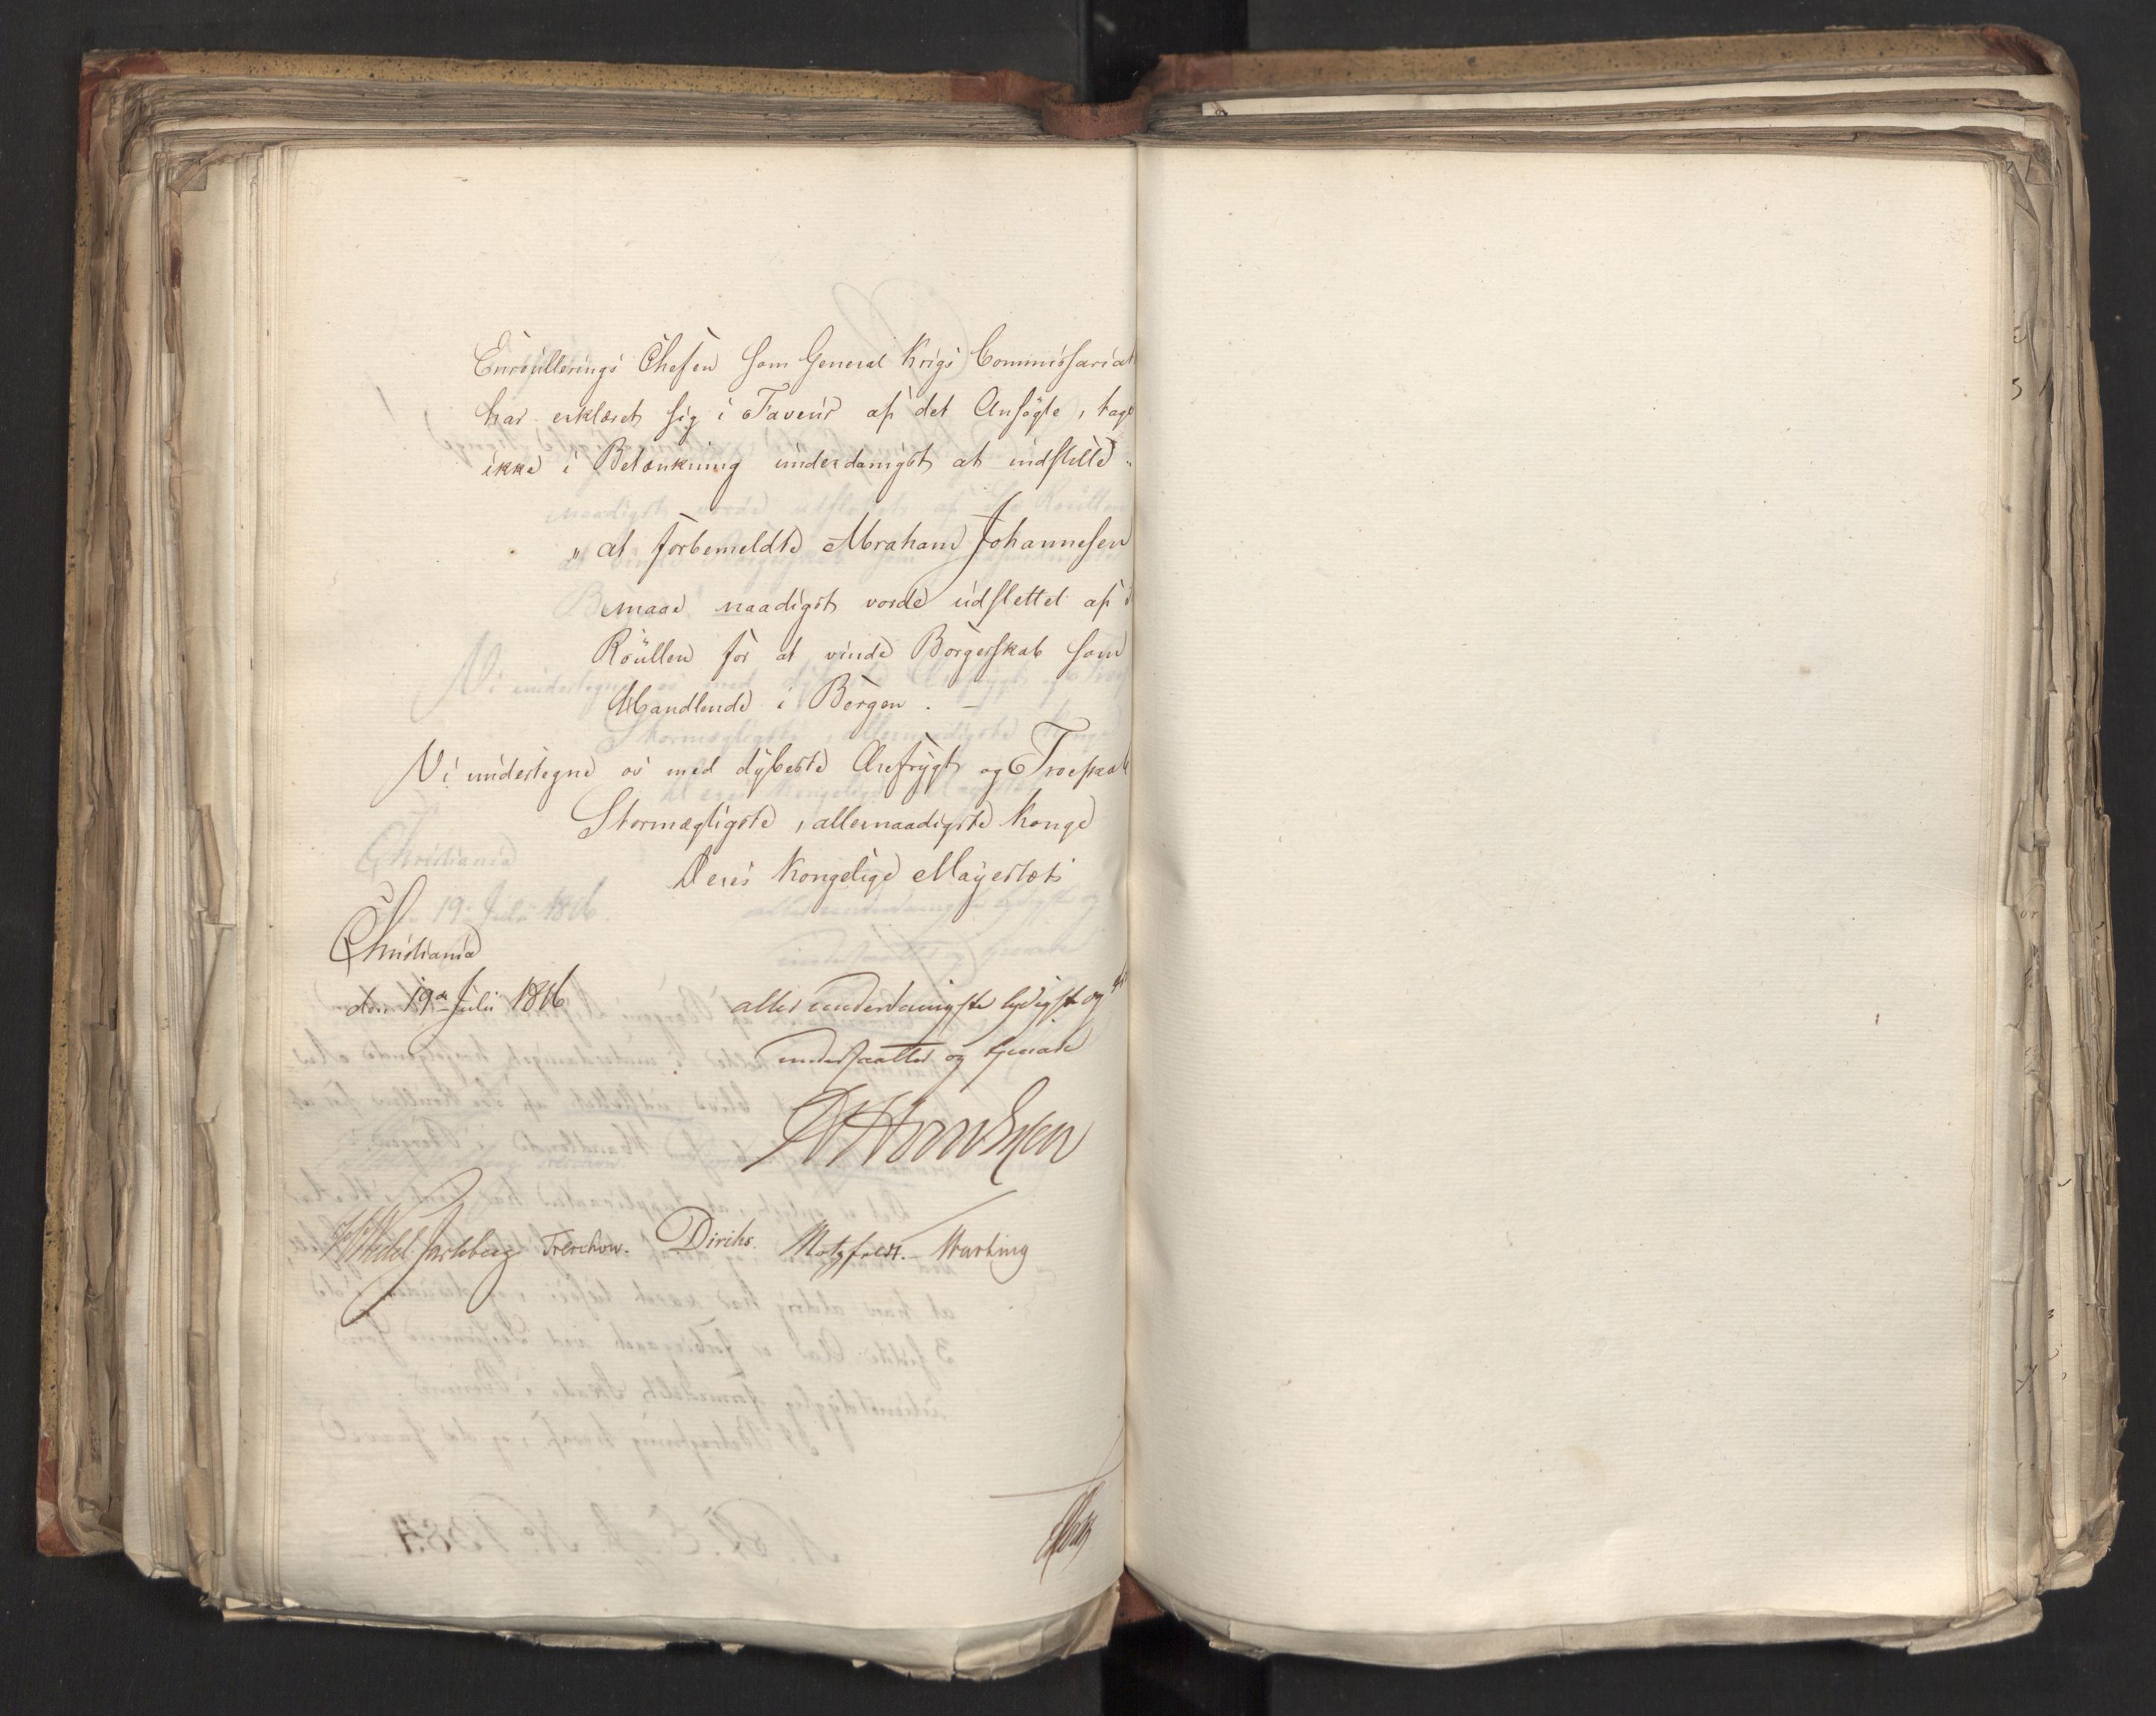 Enroullerings Chefen som General Krigs Commissariat
har erklæret sig i Faveur af det Ansögte, tage
ikke i Betænkning underdanigst at indstille:
„at forbemeldte Abraham Johannesen
maae naadigst vorde udslettet af
Roullen for at vinde Borgerskab som
Handlende i Bergen. –
Vi undertegne os med dybeste Ærefrygt og Troeskab
Stormægtigste, allernaadigste Konge
Deres Kongelige Mayestæts
Christiania
den 19de Julii 1816
allerunderdanigste lydigste og
undersaatter og tjenere
Wedel Jarlsberg Treschow. Diriks. Motzfeldt. –